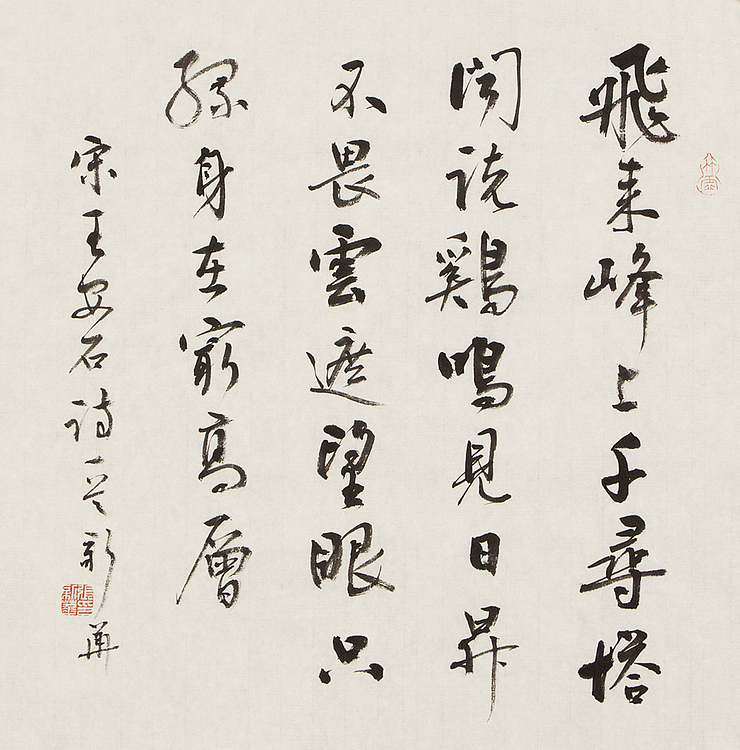 飛来峰上千尋塔
聞説鷄鳴見日昇
不畏雲遮望眼只
緣身在窮高層
宋王安石詩一首新華